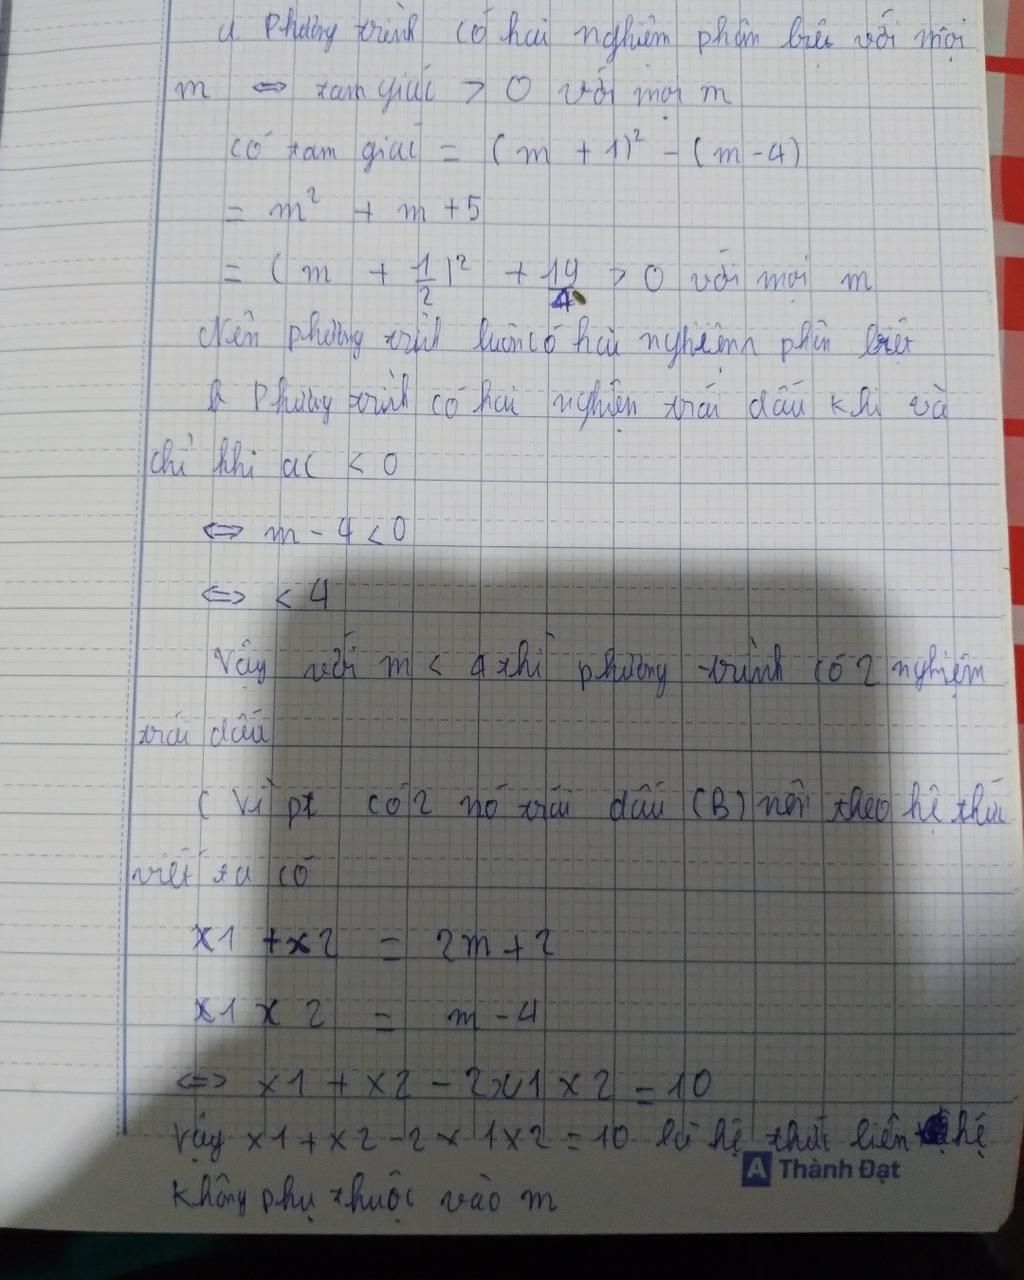 a Phương trình có hai nghiệm phân biệt với mọi
m ⇔ tam giác > 0 với mọi m
có tam giác = (m + 1)² - (m - 4)
= m² + m + 5
= (m + 1/2)² + 19/4 > 0 với mọi m
Nên phương trình luôn có hai nghiệm phân biệt
b Phương trình có hai nghiệm trái dấu khi và
chỉ khi ac < 0
⇔ m - 4 < 0
⇔ < 4
Vậy với m < 4 thì phương trình có 2 nghiệm
trái dấu
c Vì pt có 2 nó trái dấu (B) nên theo hệ thức
viét ta có
x1 + x2 = 2m + 2
x1 x 2 = m - 4
⇔ x1 + x2 - 2x1 x 2 = 10
Vậy x1 + x2 - 2 x 1 x 2 = 10 là hệ thức liên hệ
không phụ thuộc vào m
A Thành Đạt